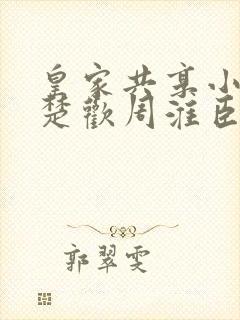 皇家共享小
楚歡周淮臣
郭翠雯